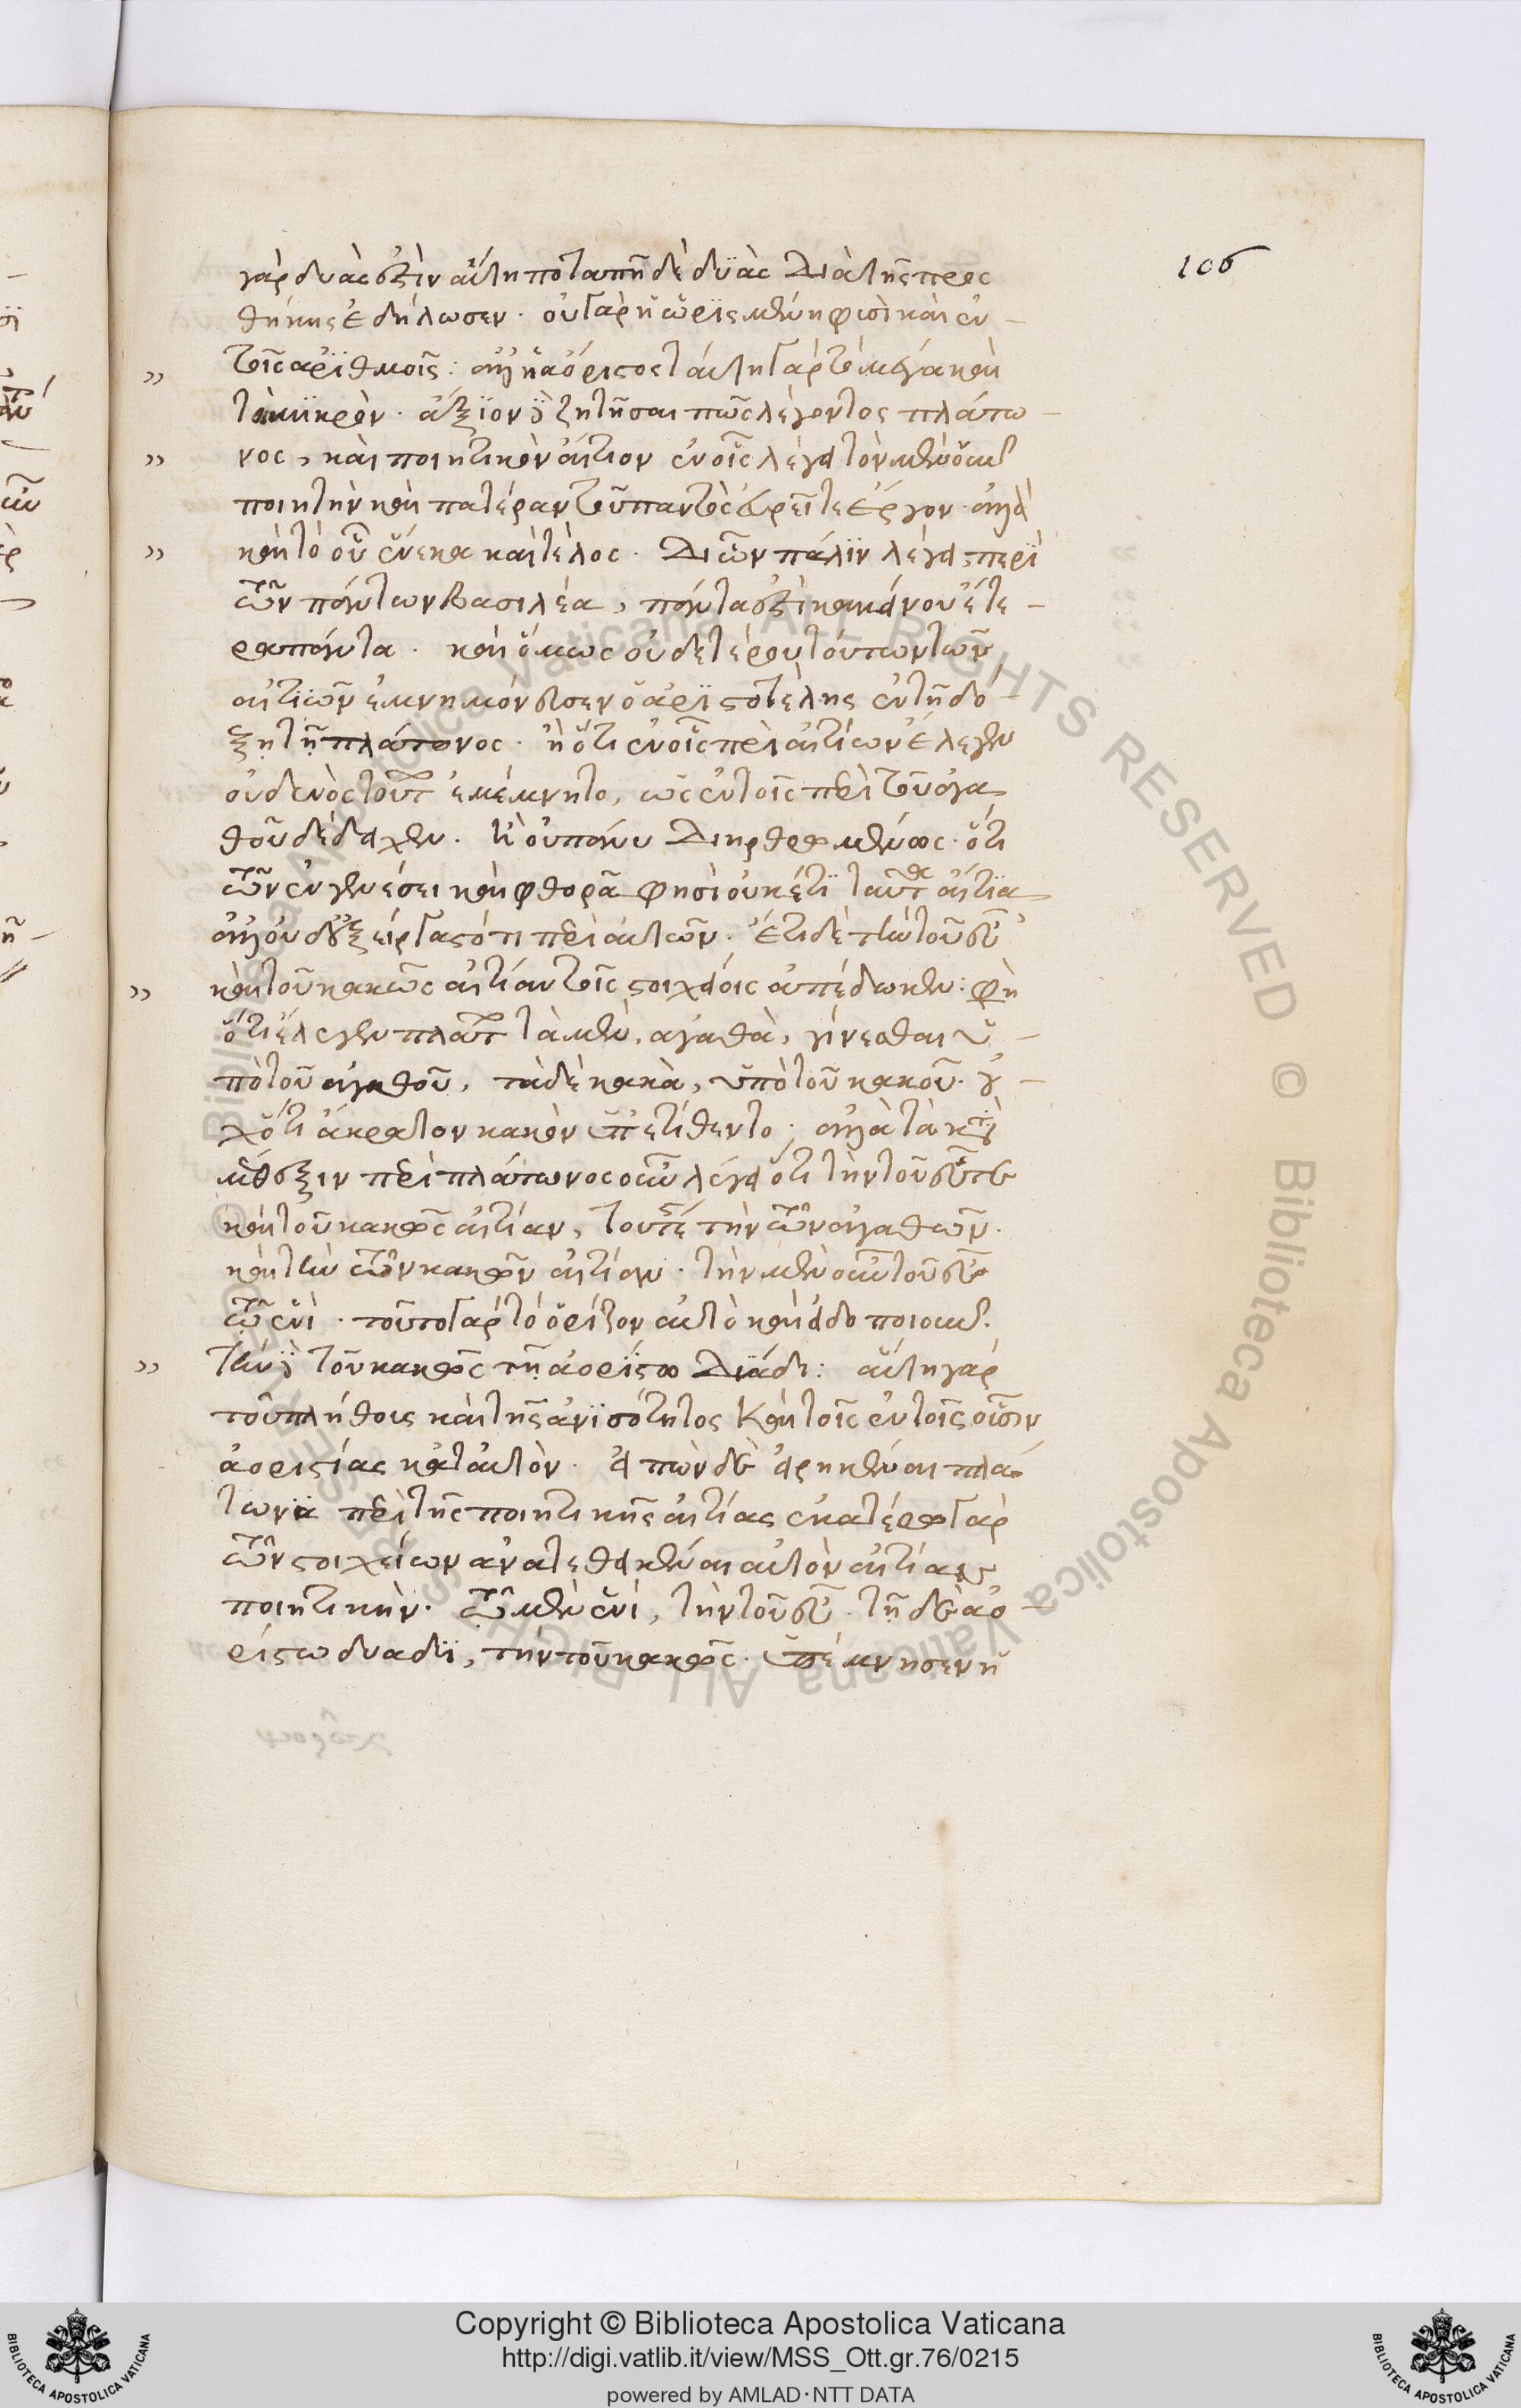 106
γὰρ δυάς ἐστὶν αὕτη ποταπὴ δὲ δϋὰς Διὰ τῆς προσ
θήκης ἐδήλωσεν · οὐ γὰρ ἡ ὡρισμένη φησὶ καὶ ἐν
τοῖς ἀρϊθμοῖς : ἀλλ' ἡ ἀόριστος ταύτη γὰρ τὸ μέγα καὶ
τὸ μϊκρὸν · ἄξϊον δὲ ζητῆσαι πῶς λέγοντος πλάτω
νος, καὶ ποιητικὸν αἴτιον ἐν οἷς λέγει τὸν μὲν οὖν
ποιητὴν καὶ πατέραν τοῦ παντὸς εὑρεῖν τε ἔργον · ἀλλὰ
καὶ τὸ οὗ ἕνεκα καὶ τέλος · Δι' ὧν πάλϊν λέγει περὶ
τῶν πάντων βασιλέα, πάντα ἐστὶ κἀκείνου ἕνε
κα πάντα · καὶ ὅμως οὐδετέρου τούτων τῶν
αἰτιῶν ἐμνημόνευσεν ὁ ἀρϊστοτέλης ἐν τῇ δό
ξῃ τῇ πλάτωνος · ἢ ὅτι ἐν οἷς περὶ αἰτίων ἔλεγεν
οὐδενὸς τούτ ἐμέμνητο, ὡς ἐν τοῖς περὶ τοῦ ἀγα
θοῦ δέδειχεν · ἢ οὐ πάνυ Διηρθρωμένως · ὅτι
τῶν ἐν γενέσει καὶ φθορᾶ φησὶ οὐκέτϊ ταῦτ αἴτϊα
ἀλλ' οὐδ' ἐξείργασότι περὶ αὐτῶν · ἔτι δὲ τὴν τοῦ εὖ
καὶ τοῦ κακῶς αἰτίαν τοῖς στοιχείοις ἀπέδωκεν : φη
ὅτι ἔλεγεν πλατ τὰ μὲν, ἀγαθὰ, γίνεσθαι ὑ
πὸ τοῦ ἀγαθοῦ, τὰ δὲ κακὰ, ὑπὸ τοῦ κακοῦ · οὐ
χ' ὅτι ἄκρατον κακὸν ὑπετίθεντο · ἀλλὰ τὰ κτ
μέθεξιν περὶ πλάτωνος οὖν λέγει ὅτι τὴν τοῦ εὖ τε
καὶ τοῦ κακῶς αἰτίαν, τουτέ τὴν τῶν ἀγαθῶν ·
καὶ τὴν τῶν κακῶν αἰτίαν · τὴν μὲν οὖν τοῦ εὖ
τῷ ἑνὶ · τοῦτο γὰρ τὸ ὁρίζον αὐτὸ καὶ εἰδοποιοῦν ·
τὴν δὲ τοῦ κακῶς τῇ ἀορϊστω Δϋάδι : αὕτη γὰρ
τοῦ πλήθους καὶ τῆς ἀνϊσότητος καὶ τοῖς ἐν τοῖς οὖσιν
ἀοριστίας κατ' αὐτὸν · εἰπὼν δὲ εἰρηκέναι πλά
τωνα περὶ τῆς ποιητικῆς αἰτίας ἑκατέρω γὰρ
τῶν στοιχείων ἀνατεθεικέναι αὐτὸν αἰτίαν
ποιητικὴν · τῷ μὲν ἑνὶ, τὴν τοῦ εὖ · τῇ δὲ ἀο
ρίστω δυάδϊ, τὴν τοῦ κακῶς · ὑπέμνησεν ἡ
Copyright © Biblioteca Apostolica Vaticana
http://digi.vatlib.it/view/MSS_Ott.gr.76/0215
powered by AMLAD·NTT DATA